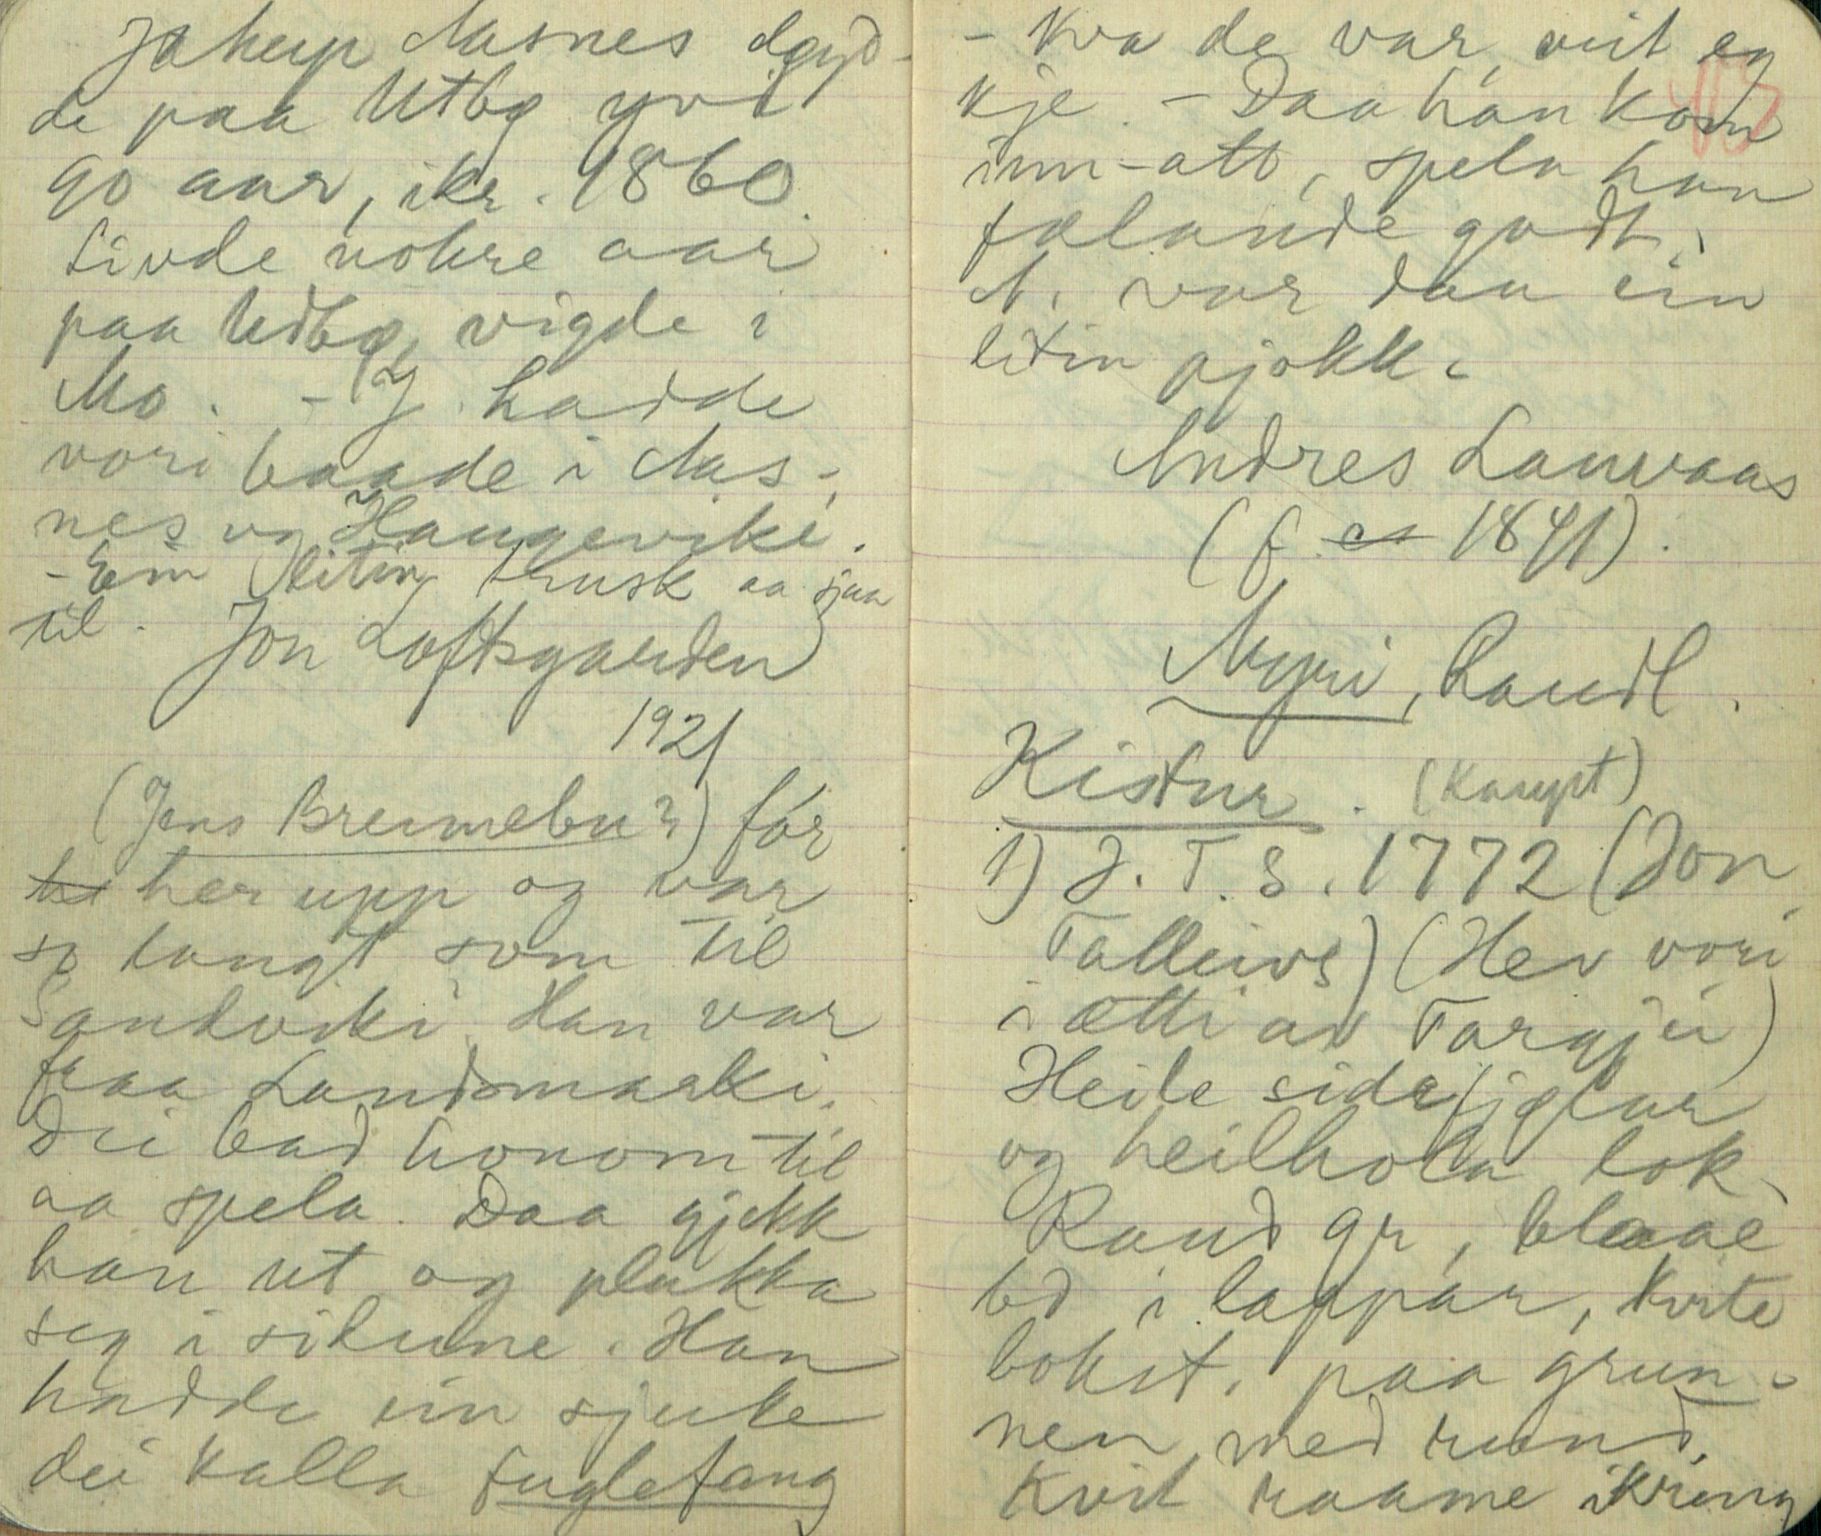 Jakup Aasnes døyd-
de paa Utbø yvi
90 aar, ikr. 1860.
Livde nokre aar
paa Utbø, vigde i
Mo. - J hadde
vori baade i Aas-
nes og Haugeviki.
- Ein liten trusk aa sjaa
til. Jon Loftsgarden
1921
(Jens Breimebu?) fór
her upp og var
so langt som til
Sandviki. Han var
fraa Landsmarki.
Dei bad honom til
aa spela. Daa gjekk
han ut og plukka
seg i sidune. Han
hadde ein sjuke
dei kalla fuglefang
- Kva de var, veit eg
kje. - Daa han kom
inn-att, spela han
fælande godt.
A. var daa ein
liten gjokk.
Andres Lauvaas
(f. ca 1841).
Myri, Raudl.
Kistur. (Kaupt)
1) J. T. S. 1772 (Jon
Talleivs) (Hev vori
i ætti av Targjei)
Heile sidefjølar
og heilhola lok.
Raud gr, blaae
bd i lappar, kvite
bokst. paa grun-
nen med rund,
kvit raame ikring